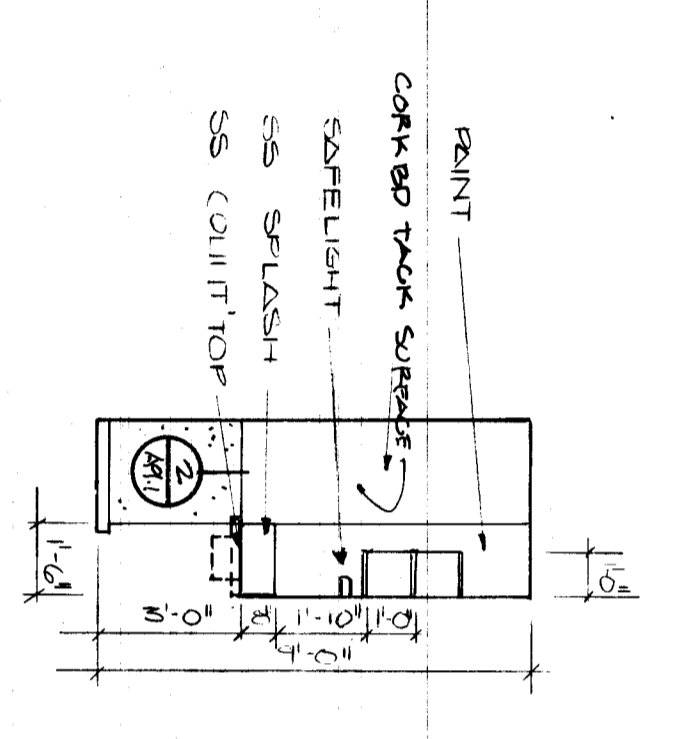 PAINT
CORK BD TACK SURFACE
SAFELIGHT
SS SPLASH
SS COUNT'TOP
2
A9.1
1'-6"
1'-0"
3'-0"
8"
1'-10"
1'-0"
9'-0"